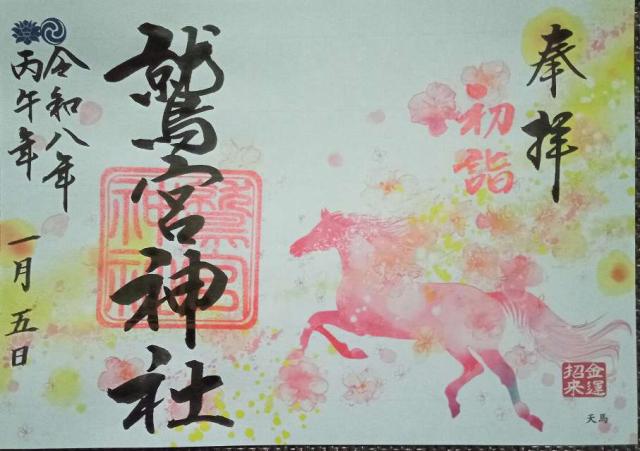 奉拝
初詣
金運
招来
天馬
鷲宮神社
鷲宮
神社
令和八年
丙午年
一月五日